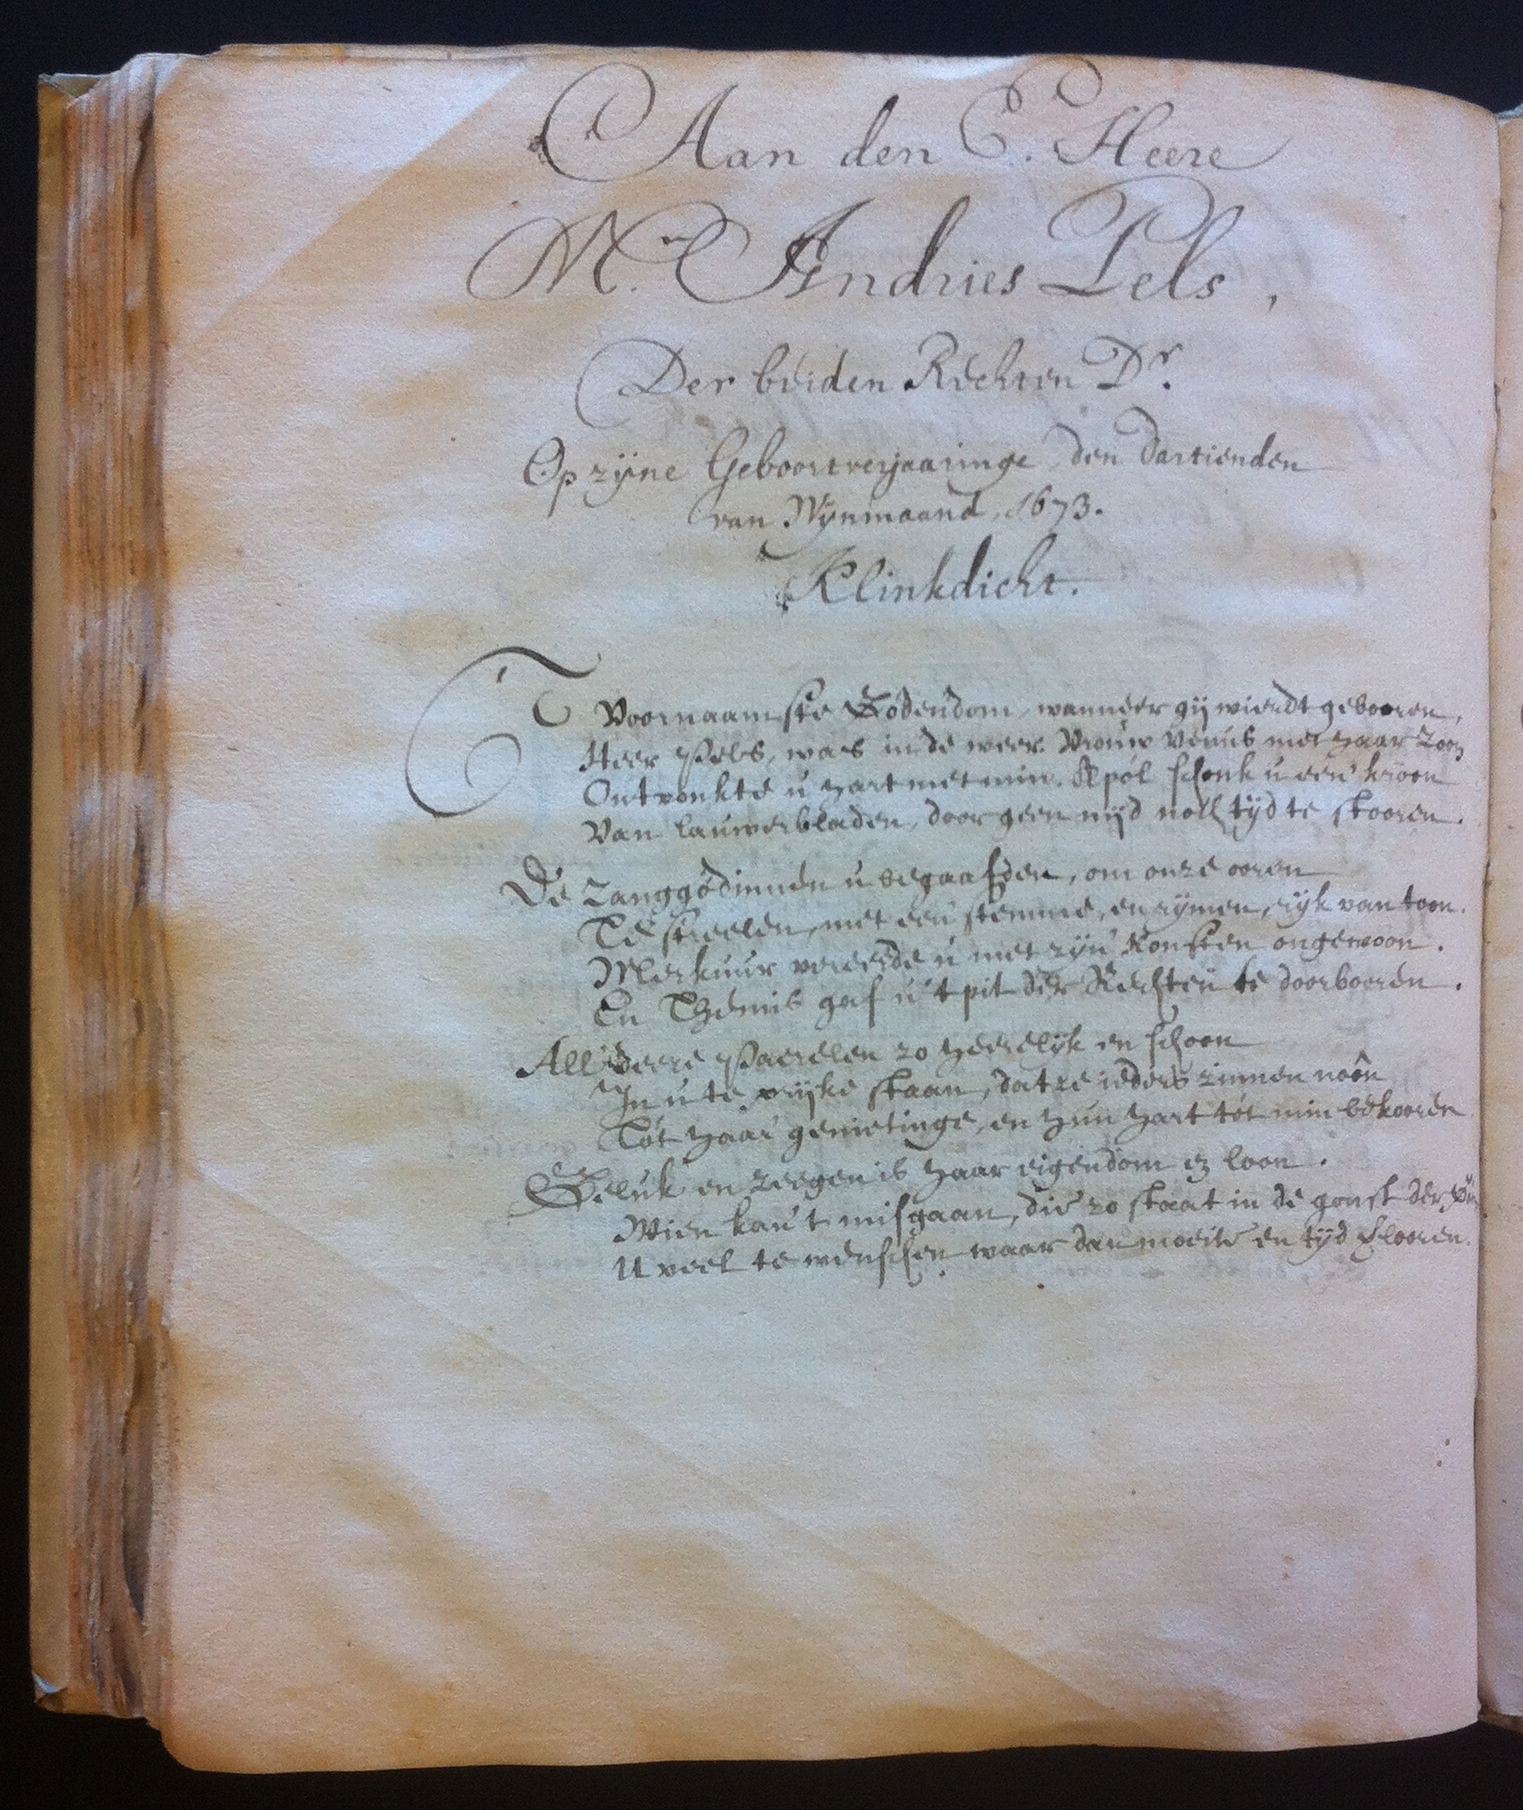 Aan den E. Heere
Mr. Andries Pels,
Der beiden Rechten Dr.
Op zijne Geboortverjaaringe den dartienden
van Wijnmaand, 1673.
Klinkdicht.
T Voornaamste Godendom, wanneer gij wierdt gebooren,
Heer Pels, was in de weer. Vrouw Venus met haar Zoon
Ontvonkte u hart met min. Apól schonk u een kroon
Van lauwerbladen, door geen nijd noch tijd te stooren.
De Zanggódinnen u begaafden, om onze ooren
Te streelen, met een stemme, en rijmen, rijk van toon.
Merkuur vereerde u met zijn Konsten ongewoon.
En Themis gaf u 't pit der Rechten te doorbooren.
All' deeze Paerelen zo heerelijk en schoon
In u te prijke staan, dat ze ieders zinnen noôn
Tót haar genietinge, en hun hart tót min bekooren
Geluk en zeegen is haar eigendom en loon.
Wien kan 't misgaan, die zo staat in de gonst der
U veel te wenschen waar dan moeite en tijd verlooren.